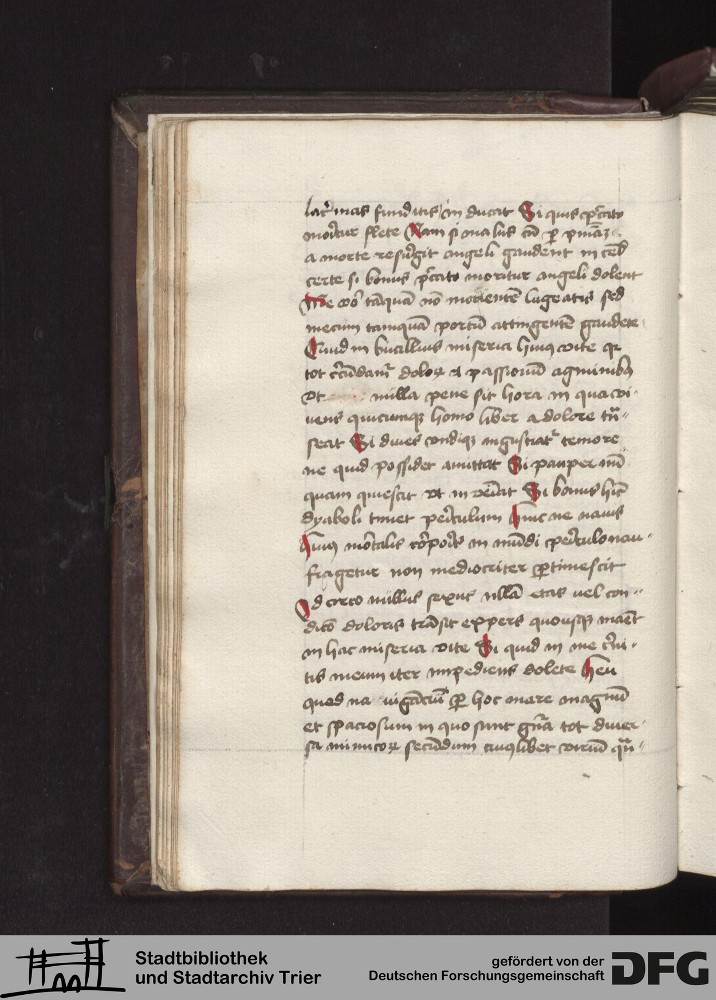 lacrimas funditis in ducat Si quis peccato
moritur flete Nam si malus cum per
a morte resurgit angeli gaudent in
certe si bonus peccato moritur angeli dolent
Me tamquam non morientem lugeatis sed
mecum tamquam portum attingentem gaudete
Quid in huius miseria huius vite
tot dolorum et passionum agminibus
Vt nulla pene sit hora in qua vi-
uens quicumque homo liber a dolore
Si diues vndique angustiatur timore
ne quid possidet amittat Si pauper
quam quiescit vt in Si bonus
dyaboli timet periculum Hinc ne nauis
huius mortalis corporis in mundi periculo nau-
fragetur non mediocriter pertimescit
Idcirco nullus sexus nulla etas vel con-
ditio doloris transit expers quousque manet
in hac miseria vite Si quid in me
tis meum iter impediens dolete Heu
quod per hoc mare magnum
et spaciosum in quo sunt genera tot diuer-
sa inimicorum secundum cuiuslibet
Stadtbibliothek
und Stadtarchiv Trier
gefördert von der
Deutschen Forschungsgemeinschaft
DFG